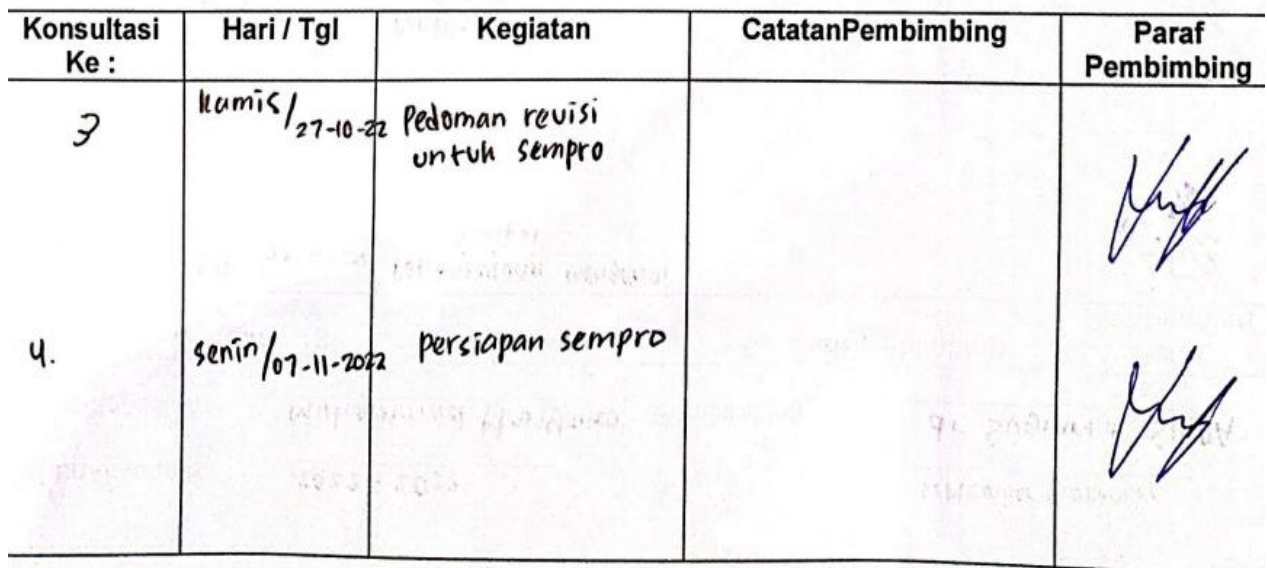 Konsultasi Ke : Hari / Tgl Kegiatan CatatanPembimbing Paraf Pembimbing
3 Kamis/27-10-22 Pedoman revisi
untuk sempro
4. Senin/07-11-2022 persiapan sempro